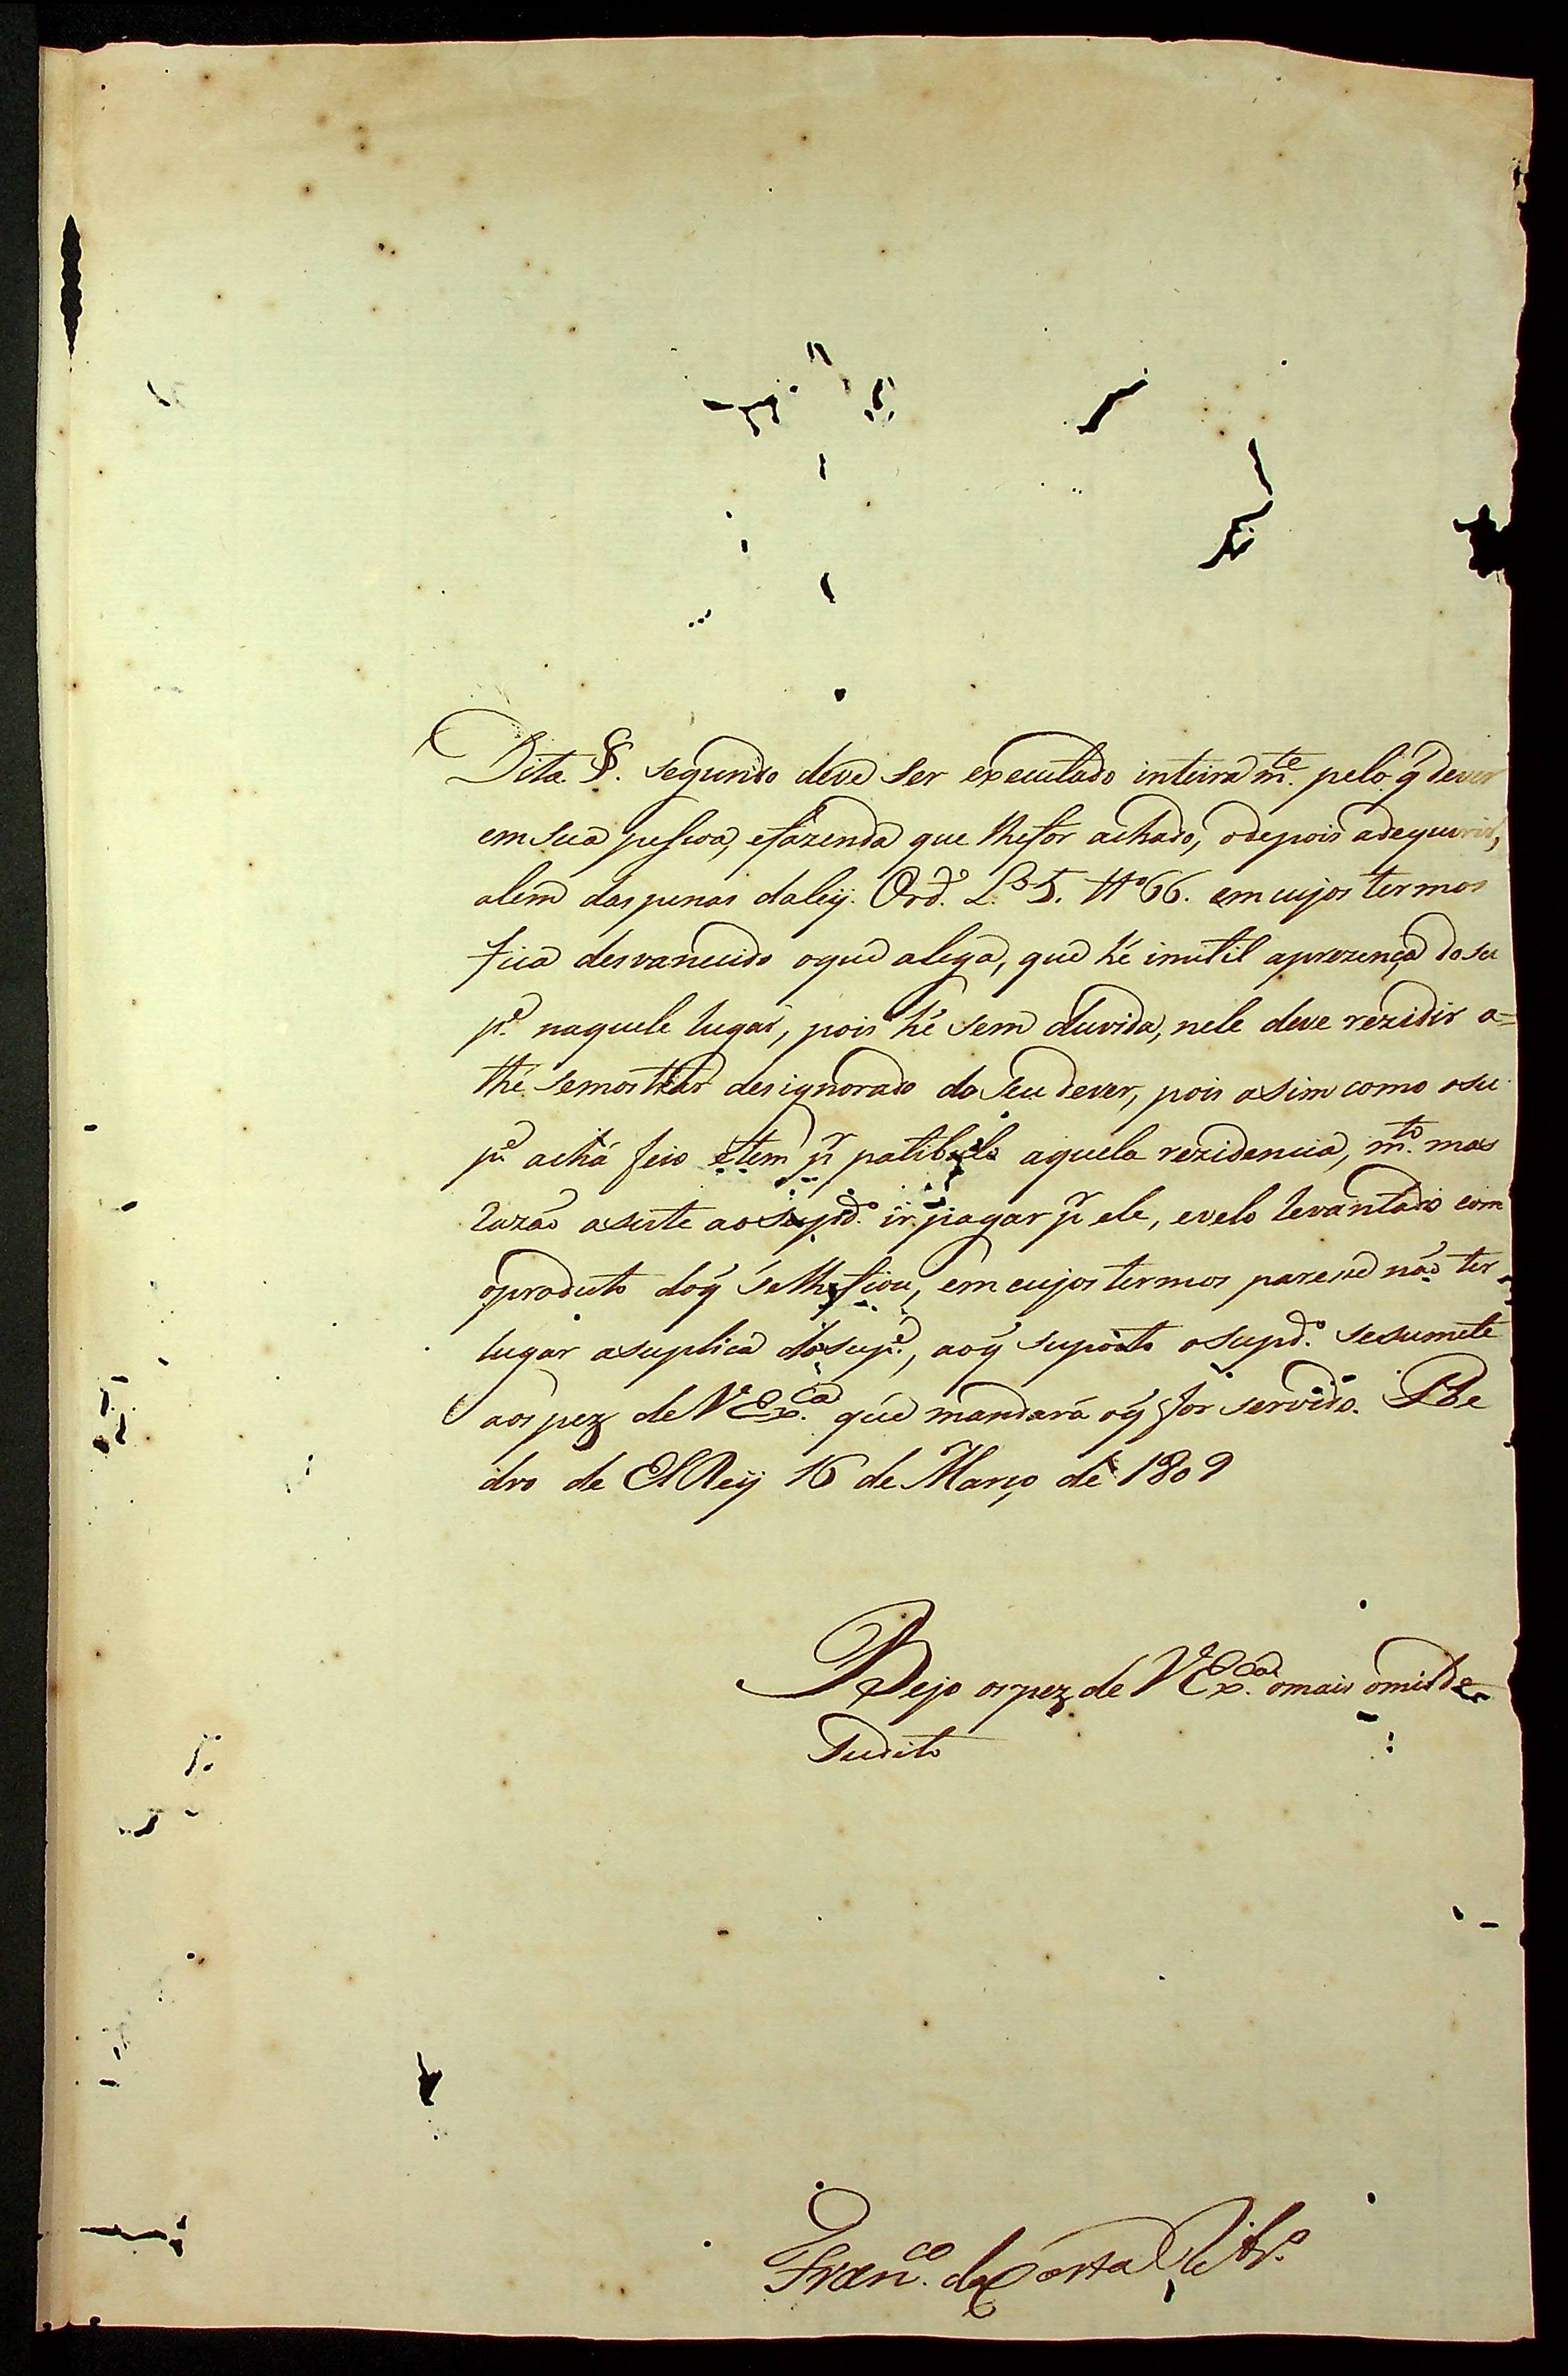 Dita §. segundo deve ser executado inteiram.te pelo q̃ dever
em sua pessoa, efazenda que lhefor achado, odepois adequerir,
alem daspenas daley. Ord.o L.o 5. tt.o 66. em cujos termos
fica desvanecido oque alega, que hé inutil aprezença dosu
p.e naquele lugar, pois hé sem duvida, nele deve rezidir a=
thé semostrar designorado do seu dever, pois asim como osu
p.e achá feio etem p.r patibulo aquela rezidencia, m.to mas
razão asiste ao sup.do ir pagar p.r ele, evelo levantado com
oproduto doq̃ selhefiou, em cujos termos parese não ter
lugar asuplica dosup.e, aoq̃ suposto osupd.o sesumete
aos pez de V Ex.ca que mandará oq̃ for servido. Pe
dro de El Rey 16 de Março de 1809
Bejo ospez de V Ex.ca omais omilde
Sudito
Fran.co da Costa Ribr.o